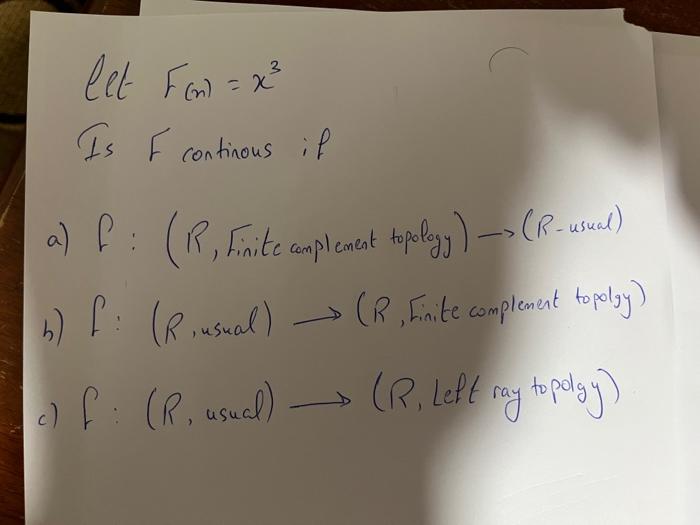 Let F(x) = x³
Is F continous if
a) f : (R, Finite complement topology) → (R-usual)
b) f : (R, usual) → (R, Finite complement topolgy)
c) f : (R, usual) → (R, Left ray topolgy)